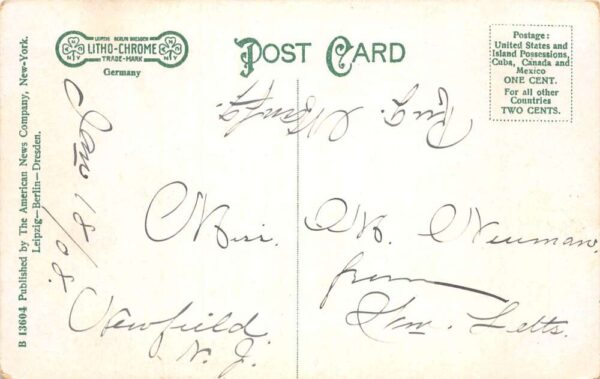 LEIPZIG BERLIN DRESDEN
LITHO-CHROME
TRADE-MARK
Germany
POST CARD
Postage:
United States and
Island Possessions,
Cuba, Canada and
Mexico
ONE CENT.
For all other
Countries
TWO CENTS.
B 13604 Published by The American News Company, New-York.
Leipzig—Berlin—Dresden.
Jan 18/08.
Rug
Miss. M. Neuman.
from
Wm. Letts.
Newfield
N. J.